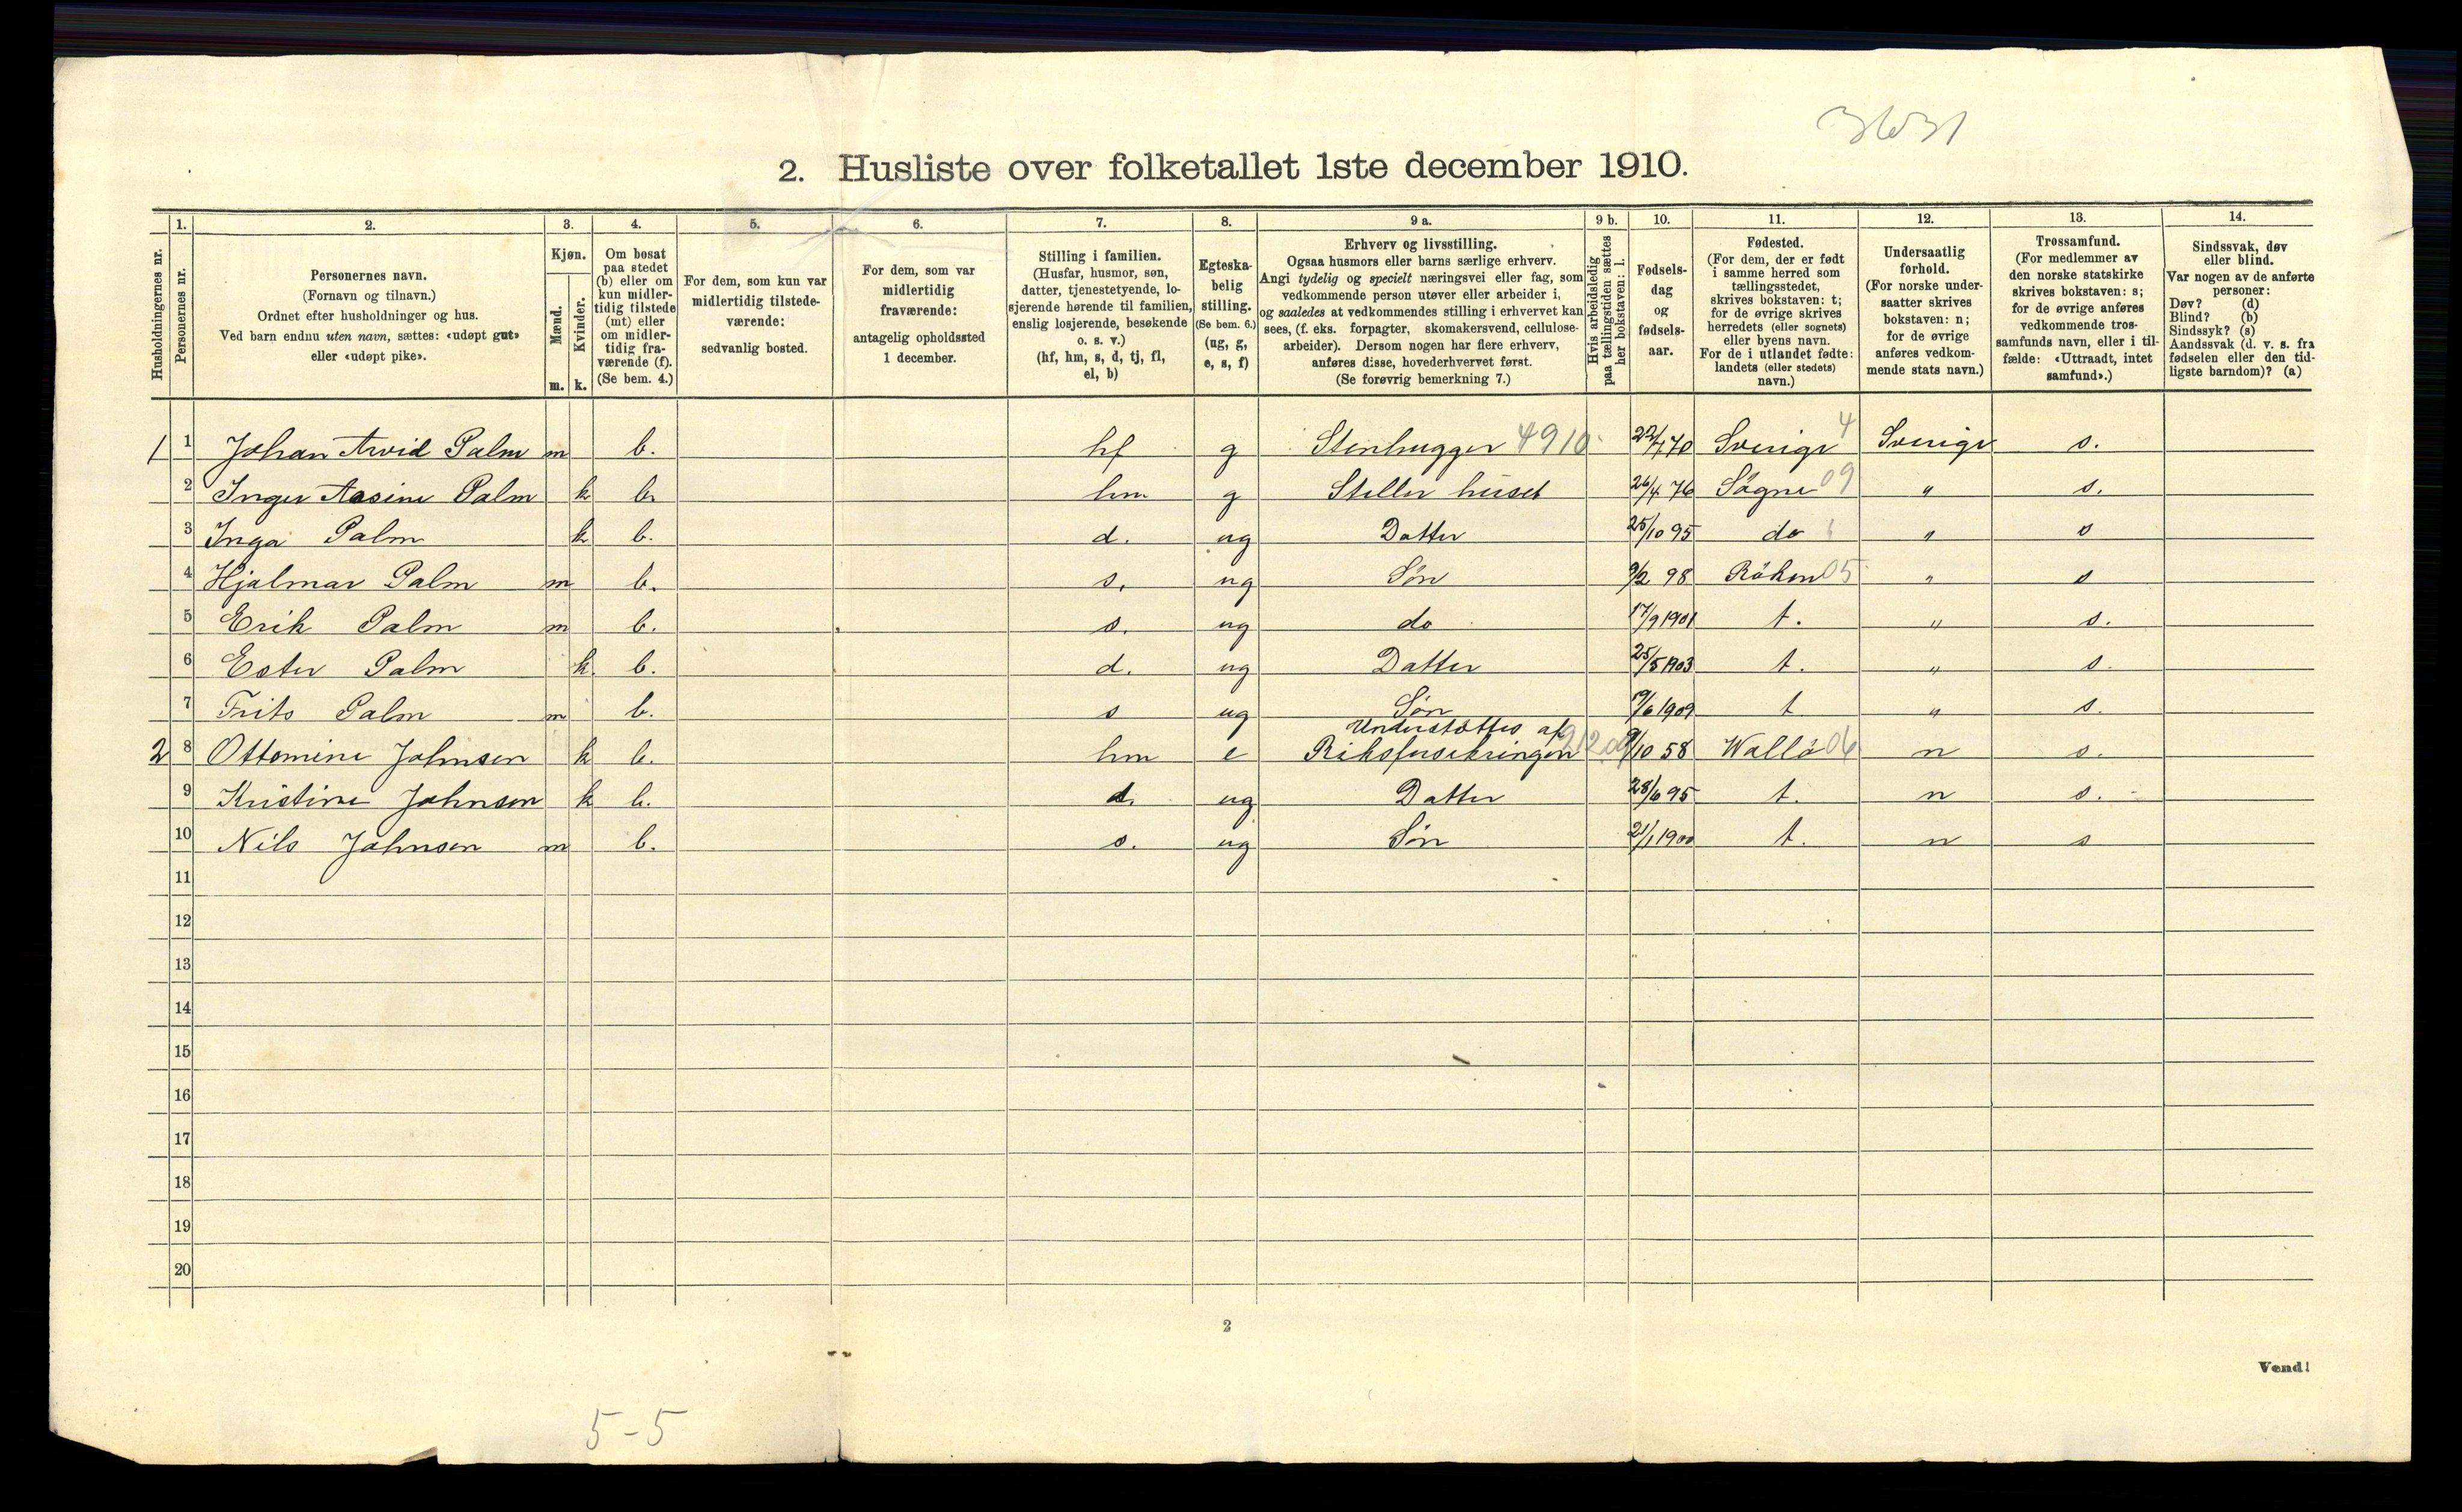 3631
2. Husliste over folketallet 1ste december 1910.
1. 2. 3. 4. 5. 6. 7. 8. 9 a. 9 b. 10. 11. 12. 13. 14.
Husholdningernes nr.
Personernes nr.
Personernes navn.
(Fornavn og tilnavn.)
Ordnet efter husholdninger og hus.
Ved barn endnu uten navn, sættes: «udøpt gut»
eller «udøpt pike».
Kjøn.
Mænd.
m.
Kvinder.
k.
Om bosat
paa stedet
(b) eller om
kun midler-
tidig tilstede
(mt) eller
om midler-
tidig fra-
værende (f).
(Se bem. 4.)
For dem, som kun var
midlertidig tilstede-
værende:
sedvanlig bosted.
For dem, som var
midlertidig
fraværende:
antagelig opholdssted
1 december.
Stilling i familien.
(Husfar, husmor, søn,
datter, tjenestetyende, lo-
sjerende hørende til familien,
enslig losjerende, besøkende
o. s. v.)
(hf, hm, s, d, tj, fl,
el, b)
Egteska-
belig
stilling.
(Se bem. 6.)
(ug, g,
e, s, f)
Erhverv og livsstilling.
Ogsaa husmors eller barns særlige erhverv.
Angi tydelig og specielt næringsvei eller fag, som
vedkommende person utøver eller arbeider i,
og saaledes at vedkommendes stilling i erhvervet kan
sees, (f. eks. forpagter, skomakersvend, cellulose-
arbeider). Dersom nogen har flere erhverv,
anføres disse, hovederhvervet først.
(Se forøvrig bemerkning 7.)
Hvis arbeidsledig
paa tællingstiden sættes
her bokstaven: l.
Fødsels-
dag
og
fødsels-
aar.
Fødested.
(For dem, der er født
i samme herred som
tællingsstedet,
skrives bokstaven: t;
for de øvrige skrives
herredets (eller sognets)
eller byens navn.
For de i utlandet fødte:
landets (eller stedets)
navn.)
Undersaatlig
forhold.
(For norske under-
saatter skrives
bokstaven: n;
for de øvrige
anføres vedkom-
mende stats navn.)
Trossamfund.
(For medlemmer av
den norske statskirke
skrives bokstaven: s;
for de øvrige anføres
vedkommende tros-
samfunds navn, eller i til-
fælde: «Uttraadt, intet
samfund».)
Sindssvak, døv
eller blind.
Var nogen av de anførte
personer:
Døv? (d)
Blind? (b)
Sindssyk? (s)
Aandssvak (d. v. s. fra
fødselen eller den tid-
ligste barndom)? (a)
1 1 Johan Arvid Palm m b. hf g Stenhugger 4910 22/7 70 Sverige 4 Sverige s.
2 Inger Aasine Palm k b. hm g Steller huset 26/4 76 Sögne 09 " s.
3 Inga Palm k b. d. ug Datter 25/10 95 do " s
4 Hjalmar Palm m b. s. ug Søn 9/2 98 Röken 05 " s
5 Erik Palm m b. s. ug do 17/9 1901 t. " s.
6 Ester Palm k. b. d. ug Datter 25/5 1903 t. " s.
7 Frits Palm m b. s ug Søn /6 1909 t " s.
Understöttes af
2 8 Ottomine Johnsen k b. hm e Riksforsikringen /10 58 Wallö 06 n s.
9 Kristine Johnsen k b. d. ug Datter 28/6 95 t. n s.
10 Nils Johnsen m b. s. ug Søn 21/1 1900 t. n s
11
12
13
14
15
16
17
18
19
20
2
Vend!
5-5